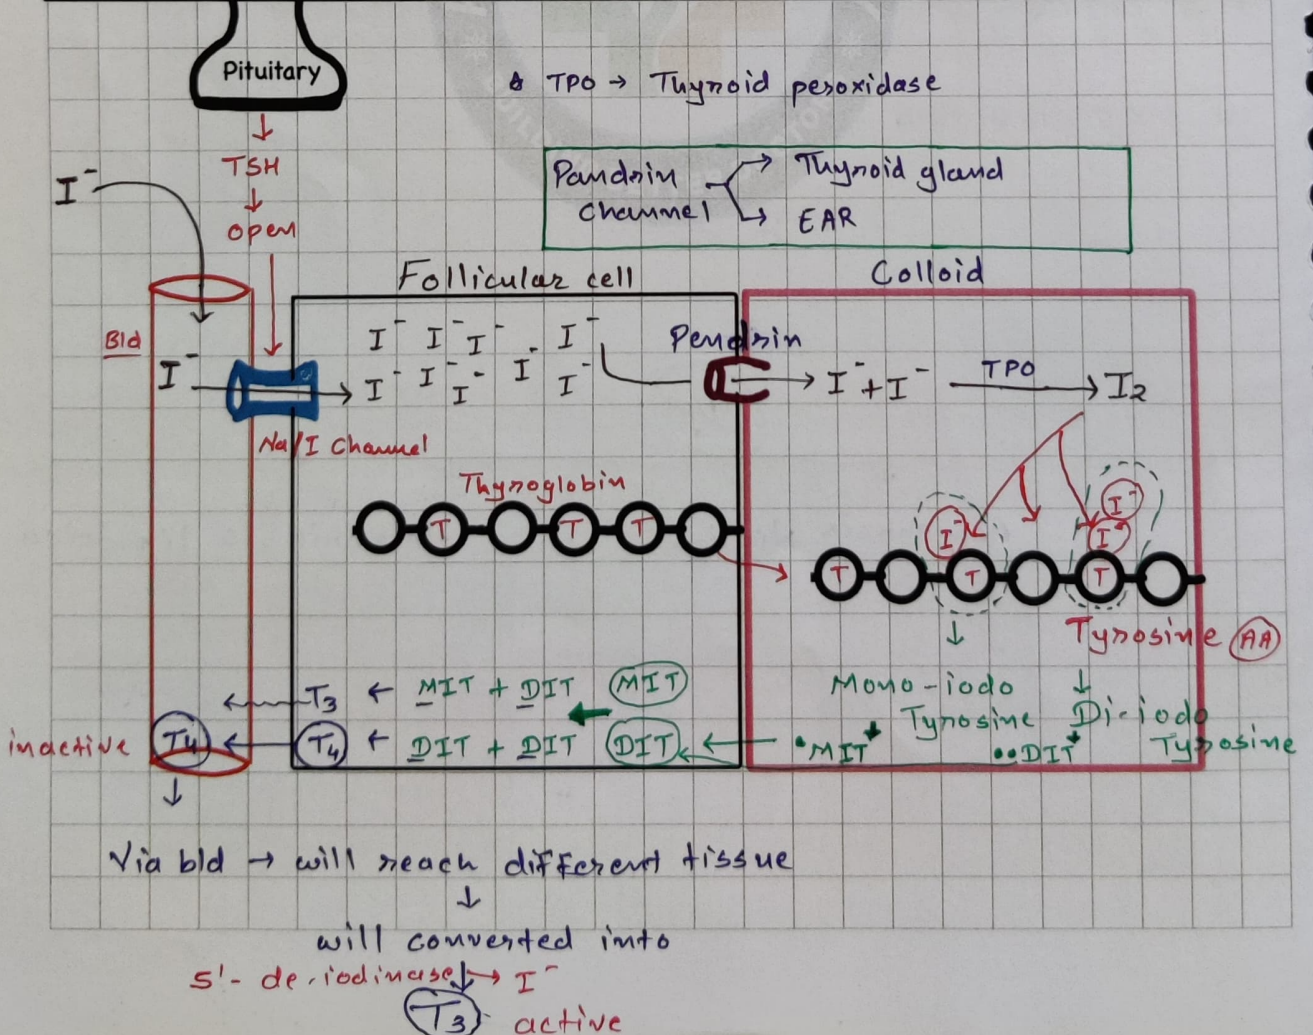 Pituitary
TPO → Thyroid peroxidase
TSH
↓
open
I⁻
Pandrin channel → Thyroid gland
→ EAR
Follicular cell
Colloid
Bld
I⁻
I⁻ I⁻ I⁻ I⁻
I⁻ I⁻ I⁻ I⁻ I⁻
Pendrin
I⁻ + I⁻ TPO → I2
Na/I Channel
Thyroglobin
T T T
I⁻ I⁻ I⁻
T T T
Tyrosine AA
Mono-iodo Tyrosine
Di-iodo Tyrosine
T3 ← MIT + DIT MIT
inactive T4 ← T4 ← DIT + DIT DIT ← •MIT ••DIT
↓
Via bld → will reach different tissue
↓
will converted into
5'- de-iodinase ↓ → I⁻
T3 active